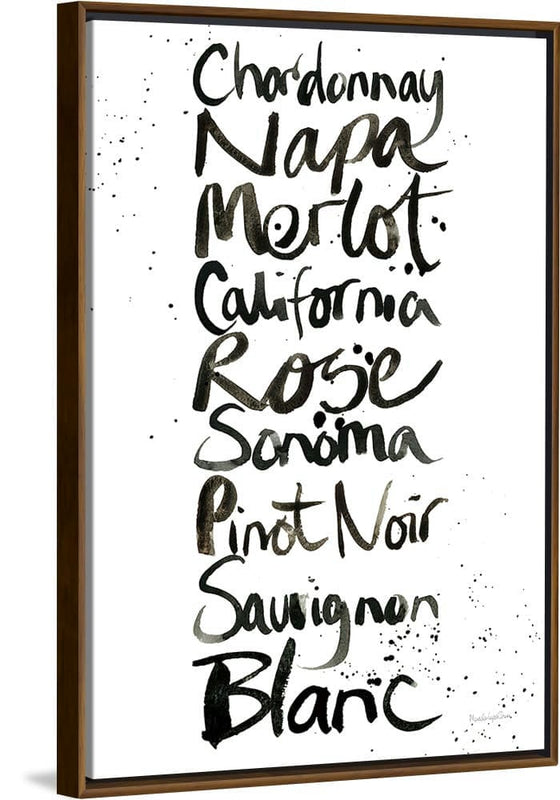 Chardonnay
Napa
Merlot
California
Rose
Sonoma
Pinot Noir
Sauvignon
Blanc